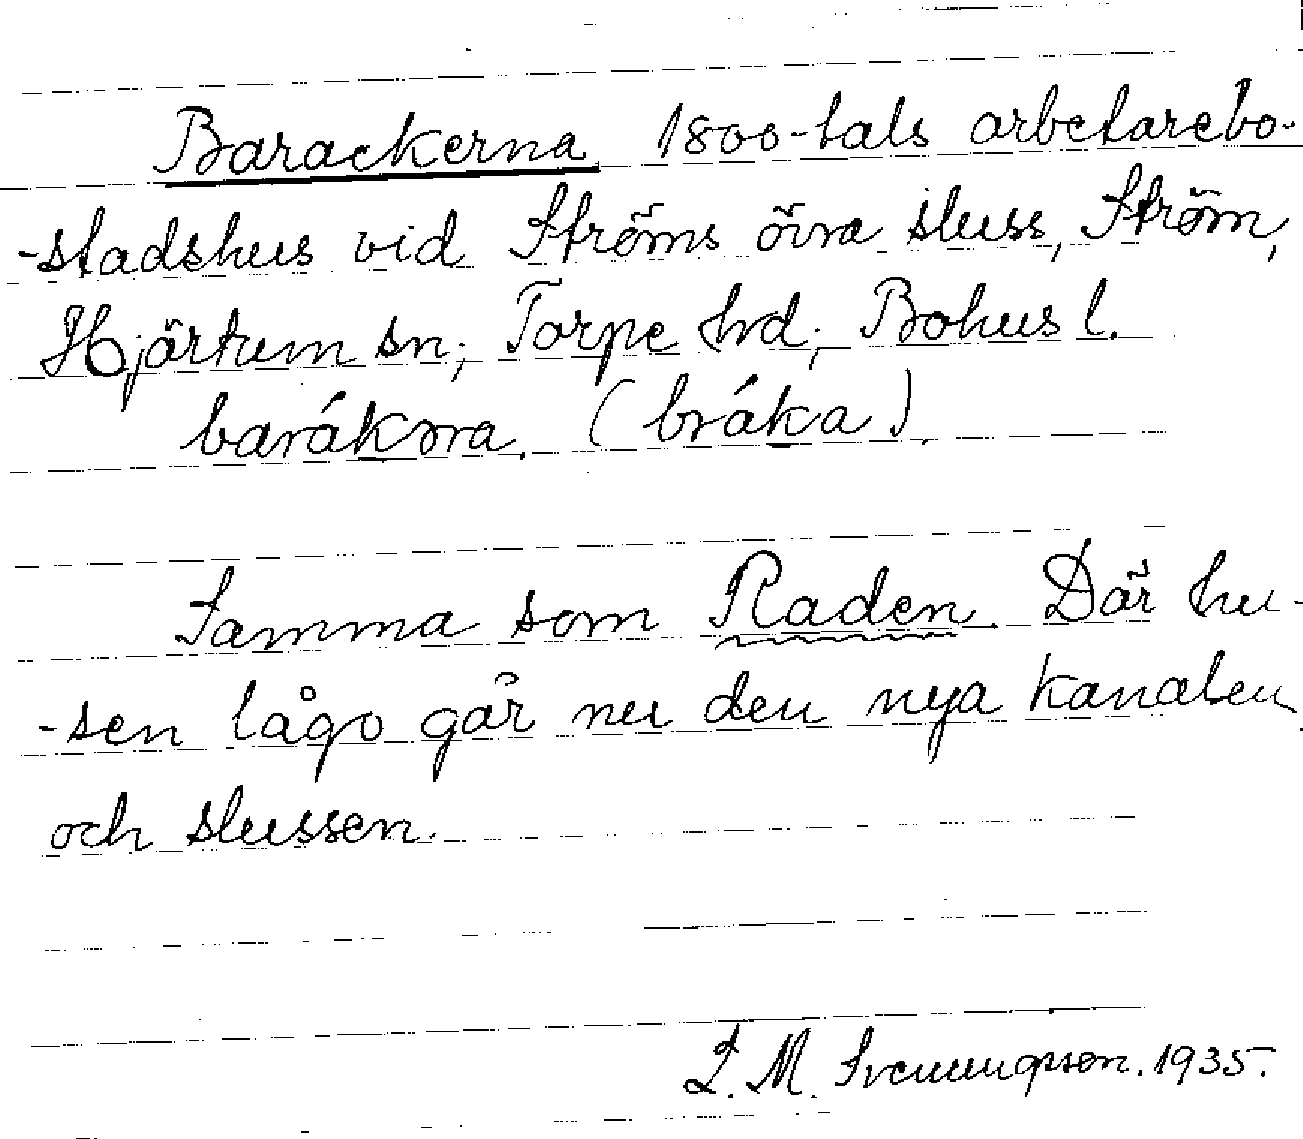 Barackerna 1800-tals arbetarebo-
-stadshus vid Ströms övra sluss, Ström,
Hjärtum sn; Torpe hrd; Bohus l.
barákɷra. (bráka).
Samma som Raden. Där hu-
-sen lågo går nu den nya kanalen
och slussen.
L. M. Svenungsson. 1935.